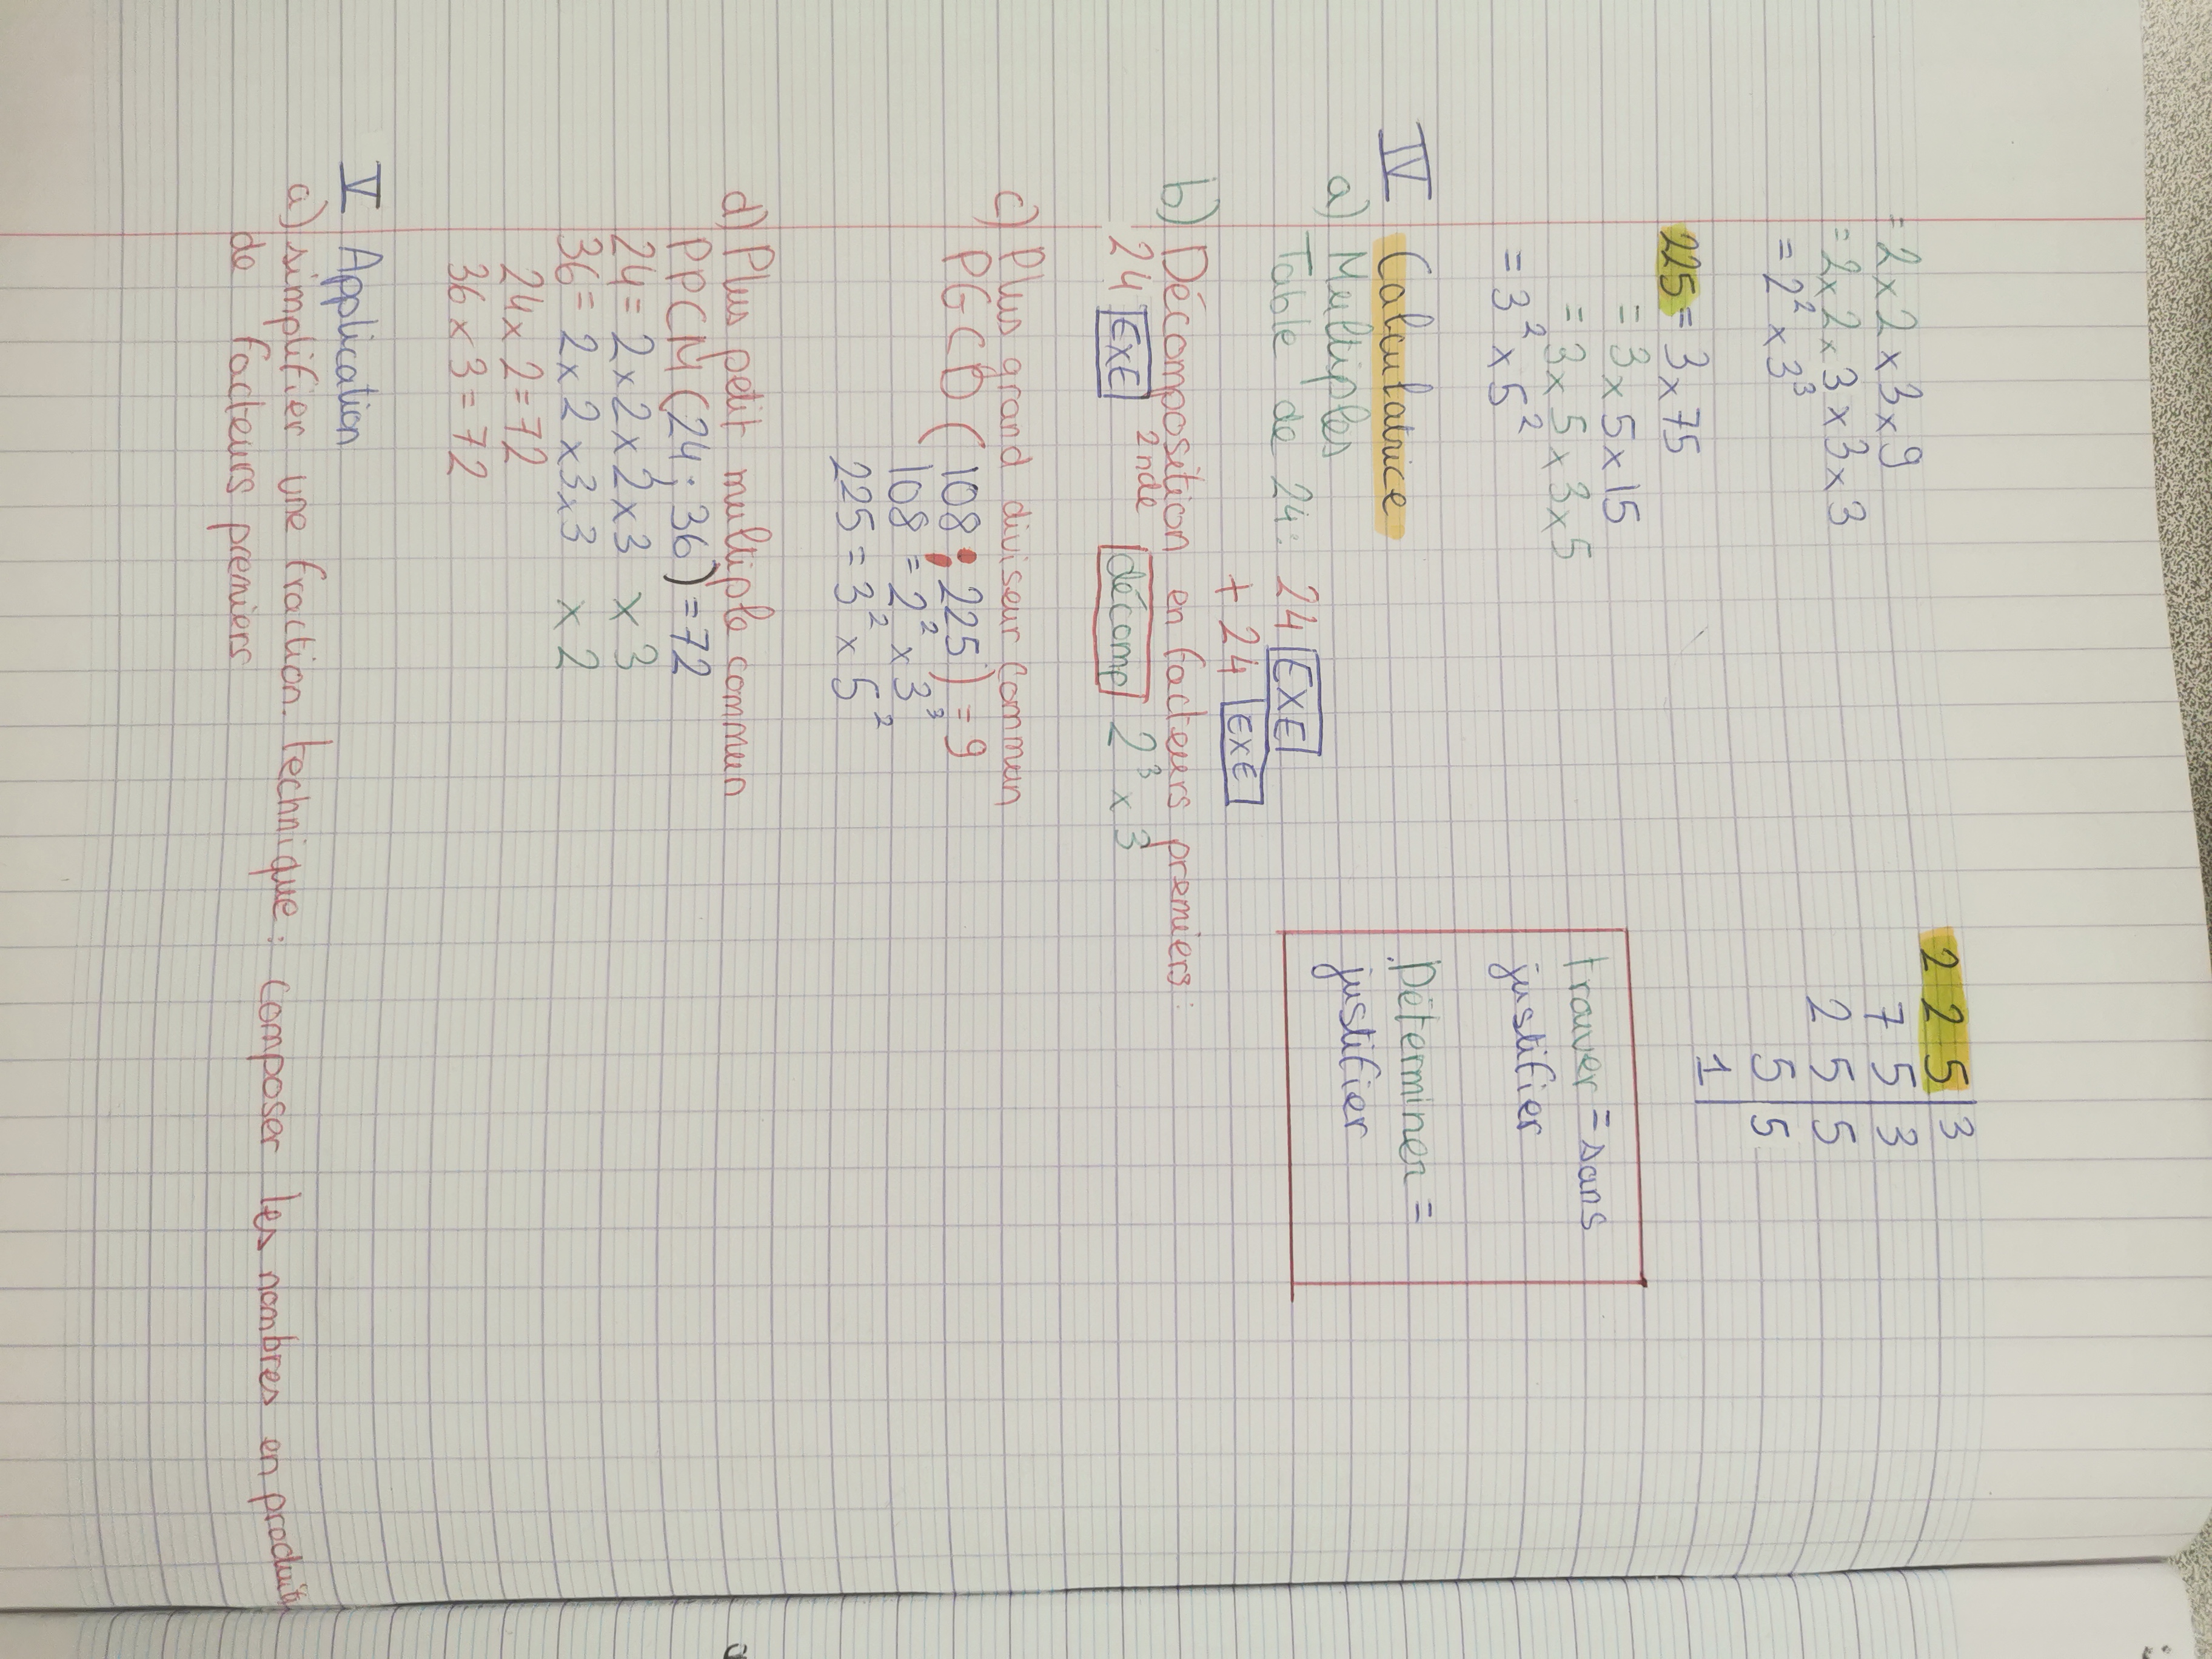 = 2 x 2 x 3 x 9
= 2 x 2 x 3 x 3 x 3
= 2² x 3³
225 | 3
75 | 3
25 | 5
5 | 5
1 |
225 = 3 x 75
= 3 x 5 x 15
= 3 x 5 x 3 x 5
= 3² x 5²
trouver = sans
justifier
Déterminer =
justifier
IV Calculatrice
a) Multiples
Table de 24 : 24 EXE
+ 24 EXE
b) Décomposition en facteurs premiers :
24 EXE 2nde décomp 2³ x 3
c) Plus grand diviseur commun
PGCD (108 ; 225) = 9
108 = 2² x 3³
225 = 3² x 5²
d) Plus petit multiple commun
PPCM (24 ; 36) = 72
24 = 2 x 2 x 2 x 3 x 3
36 = 2 x 2 x 3 x 3 x 2
24 x 2 = 72
36 x 3 = 72
V Application
a) simplifier une fraction. technique : composer les nombres en produits
de facteurs premiers